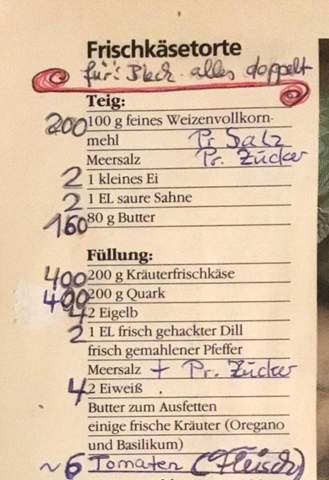 Frischkäsetorte
für's Blech alles doppelt
Teig:
200 100 g feines Weizenvollkorn-
mehl Pr. Salz
Meersalz Pr. Zucker
2 1 kleines Ei
2 1 EL saure Sahne
160 80 g Butter
Füllung:
400 200 g Kräuterfrischkäse
400 200 g Quark
4 2 Eigelb
2 1 EL frisch gehackter Dill
frisch gemahlener Pfeffer
Meersalz + Pr. Zucker
4 2 Eiweiß
Butter zum Ausfetten
einige frische Kräuter (Oregano
und Basilikum)
~6 Tomaten (Fleisch)